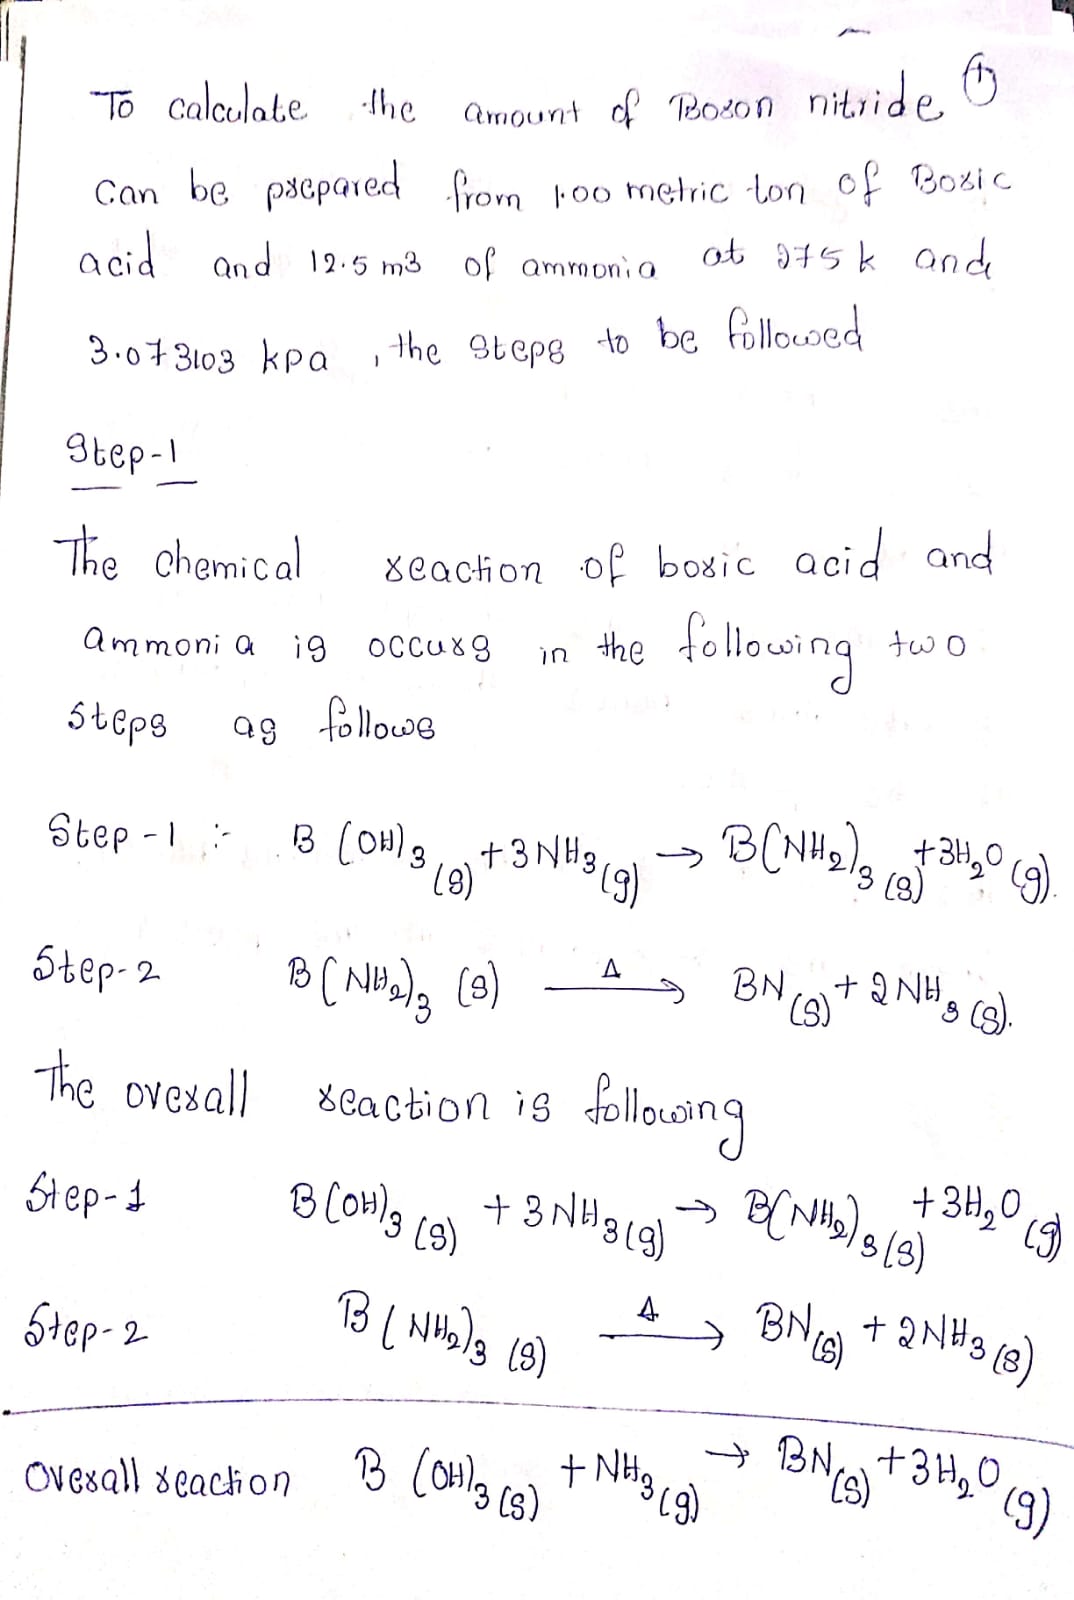 To calculate the amount of Boron nitride ①
can be prepared from 1.00 metric ton of Boric
acid and 12.5 m3 of ammonia at 275 k and
3.073103 kpa , the steps to be followed
Step-1
The chemical reaction of boric acid and
ammonia is occurs in the following two
steps as follows
Step -1 :- B (OH)3 (s) + 3NH3 (g) → B(NH2)3 (s) + 3H2O (g).
Step-2 B(NH2)3 (s) —Δ→ BN (s) + 2NH3 (s).
The overall reaction is following
Step-1 B(OH)3 (s) + 3NH3 (g) → B(NH2)3 (s) + 3H2O (g)
Step-2 B(NH2)3 (s) —Δ→ BN (s) + 2NH3 (s)
Overall reaction B (OH)3 (s) + NH3 (g) → BN (s) + 3H2O (g)